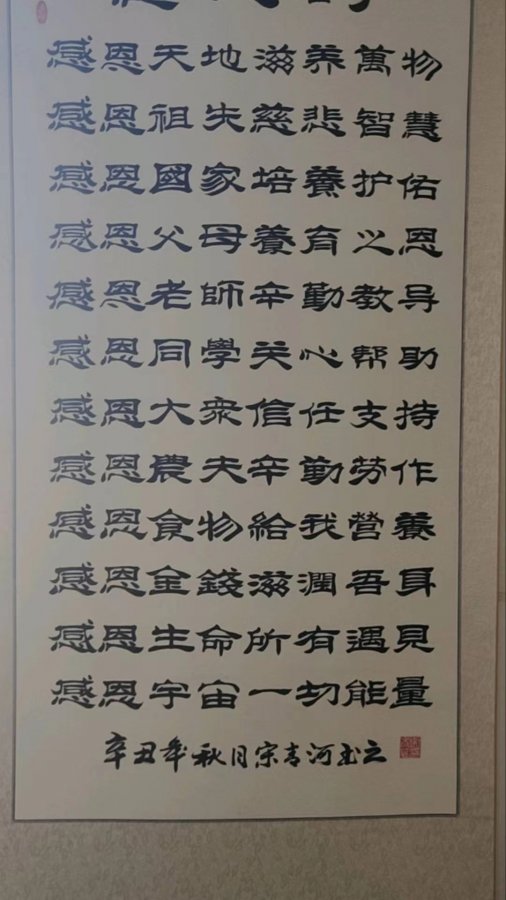 感恩天地滋养萬物
感恩祖先慈悲智慧
感恩國家培養护佑
感恩父母養育之恩
感恩老師辛勤教导
感恩同學关心帮助
感恩大衆信任支持
感恩農夫辛勤劳作
感恩食物給我營養
感恩金錢滋潤吾身
感恩生命所有遇見
感恩宇宙一切能量
辛丑年秋月宗青河书之